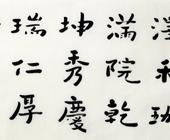 滿院乾
坤秀慶
瑞仁厚